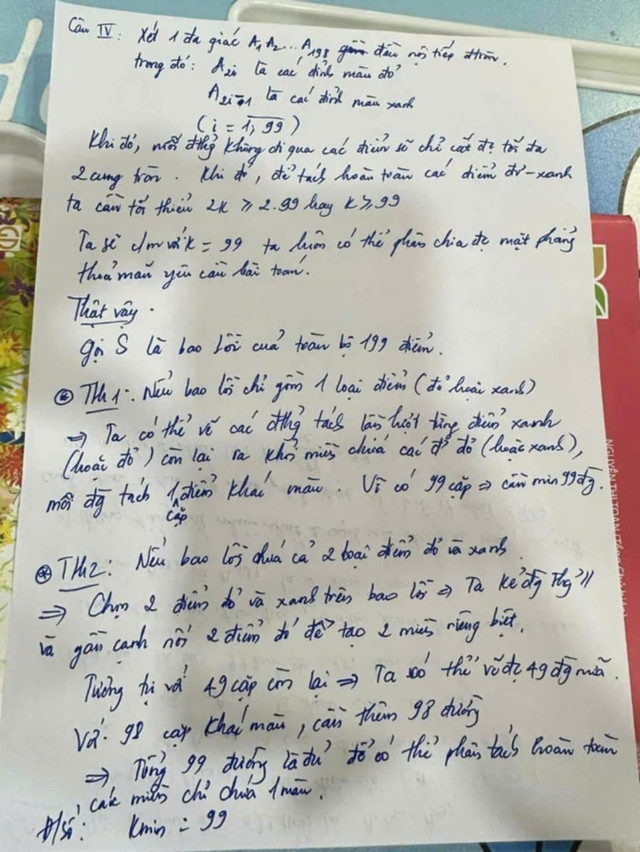 Câu IV: Xét 1 đa giác A₁A₂...A₁₉₈ đều nội tiếp đtròn.
trong đó: A₂ᵢ là các đỉnh màu đỏ
A₂ᵢ₋₁ là các đỉnh màu xanh
(i = 1,99)
Khi đó, mỗi đthg không đi qua các điểm sẽ chỉ cắt đc tối đa
2 cung tròn. Khi đó, để tách hoàn toàn các điểm đỏ-xanh
ta cần tối thiểu 2k ≥ 2.99 hay k ≥ 99
Ta sẽ c/m với k = 99 ta luôn có thể phân chia đc mặt phẳng
thoả mãn yêu cầu bài toán.
Thật vậy.
Gọi S là bao lồi của toàn bộ 199 điểm.
⊛ TH1: Nếu bao lồi chỉ gồm 1 loại điểm (đỏ hoặc xanh)
⇒ Ta có thể vẽ các đthg tách lần lượt từng điểm xanh
(hoặc đỏ) còn lại ra khỏi miền chứa các đ' đỏ (hoặc xanh),
mỗi đg tách 1 cặp điểm khác màu. Vì có 99 cặp ⇒ cần min 99 đg.
⊛ TH2: Nếu bao lồi chứa cả 2 loại điểm đỏ và xanh
⇒ Chọn 2 điểm đỏ và xanh trên bao lồi ⇒ Ta kẻ đg thg //
và gần cạnh nối 2 điểm đó để tạo 2 miền riêng biệt.
Tương tự với 49 cặp còn lại ⇒ Ta có thể vẽ đc 49 đg nữa.
Với 98 cặp khác màu, cần thêm 98 đường
⇒ Tổng 99 đường là đủ để có thể phân tách hoàn toàn
các miền chỉ chứa 1 màu.
Đ/số: Kmin = 99
NGUYỄN THỊ TOÀN